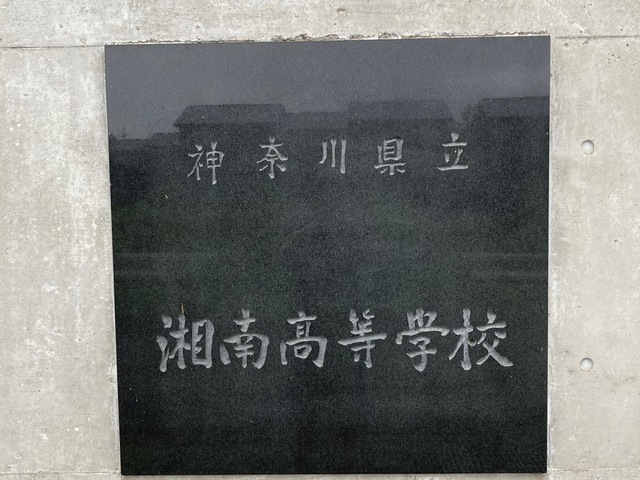 神奈川県立
湘南高等学校